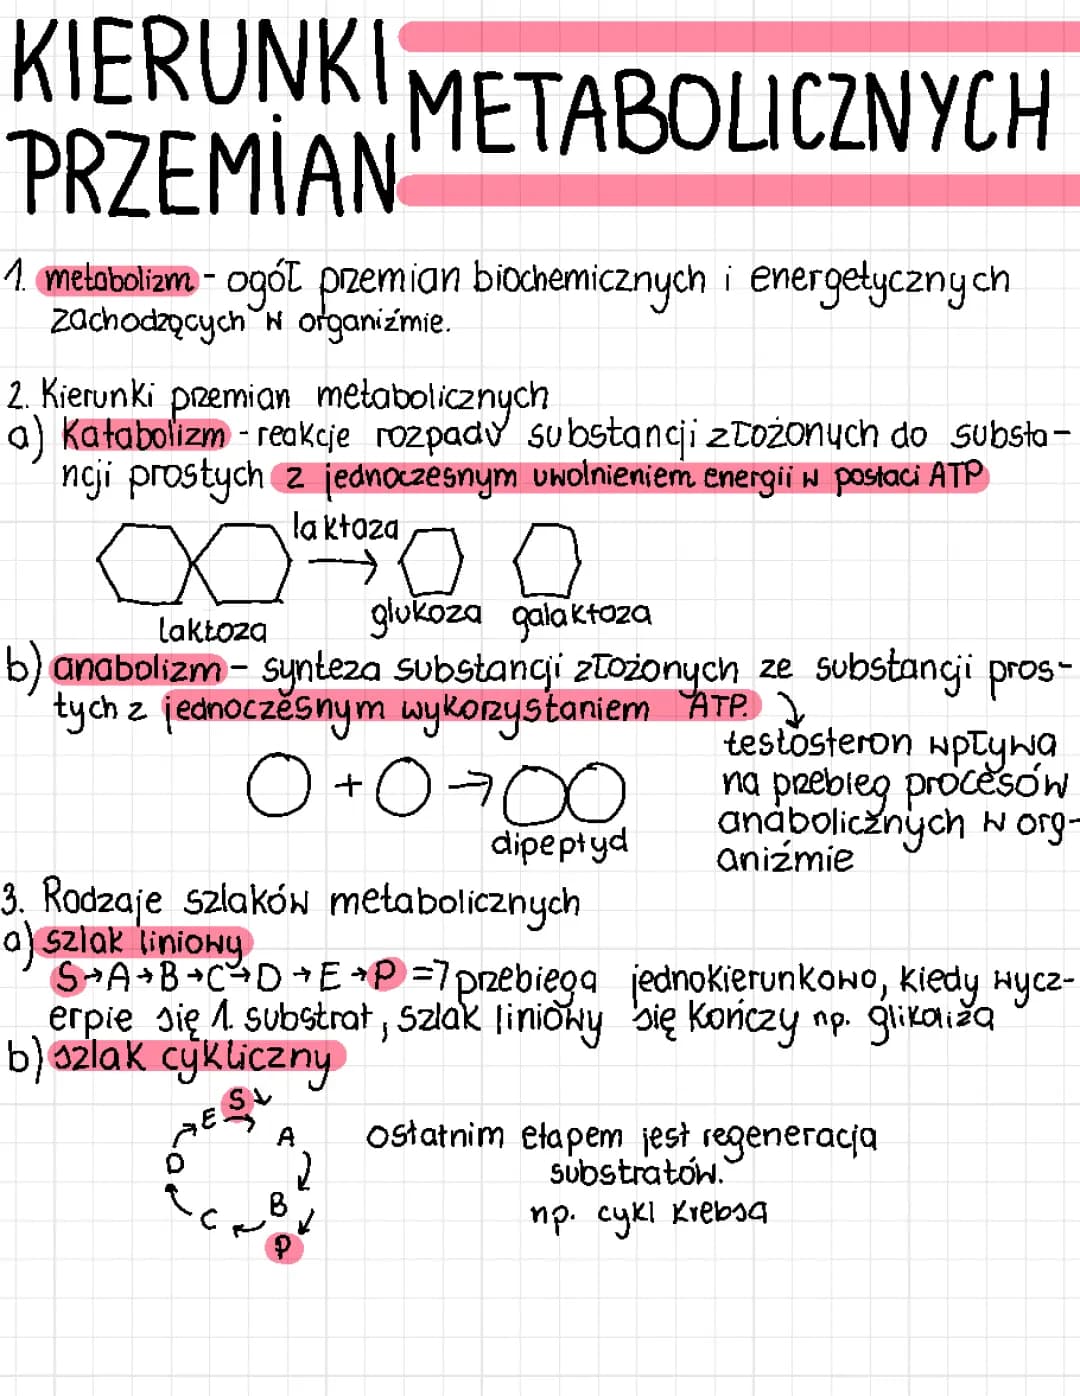 KIERUNKI
PRZEMIAN METABOLICZNYCH
1. metabolizm - ogół przemian biochemicznych i energetycznych
zachodzących w organiźmie.
2. Kierunki przemian metabolicznych
a) Katabolizm - reakcje rozpadu substancji złożonych do substa-
ncji prostych z jednoczesnym uwolnieniem energii w postaci ATP
laktaza
→
laktoza glukoza galaktoza
b) anabolizm - synteza substancji złożonych ze substancji pros-
tych z jednoczesnym wykorzystaniem ATP.
testosteron wpływa
na przebieg procesów
anabolicznych w org-
aniźmie
+ →
dipeptyd
3. Rodzaje szlaków metabolicznych
a) szlak liniowy
S→A→B→C→D→E→P => przebiega jednokierunkowo, kiedy wycz-
erpie się 1. substrat, szlak liniowy się kończy np. glikoliza
b) szlak cykliczny
S
E
A
D
B
C
P
ostatnim etapem jest regeneracja
substratów.
np. cykl Krebsa